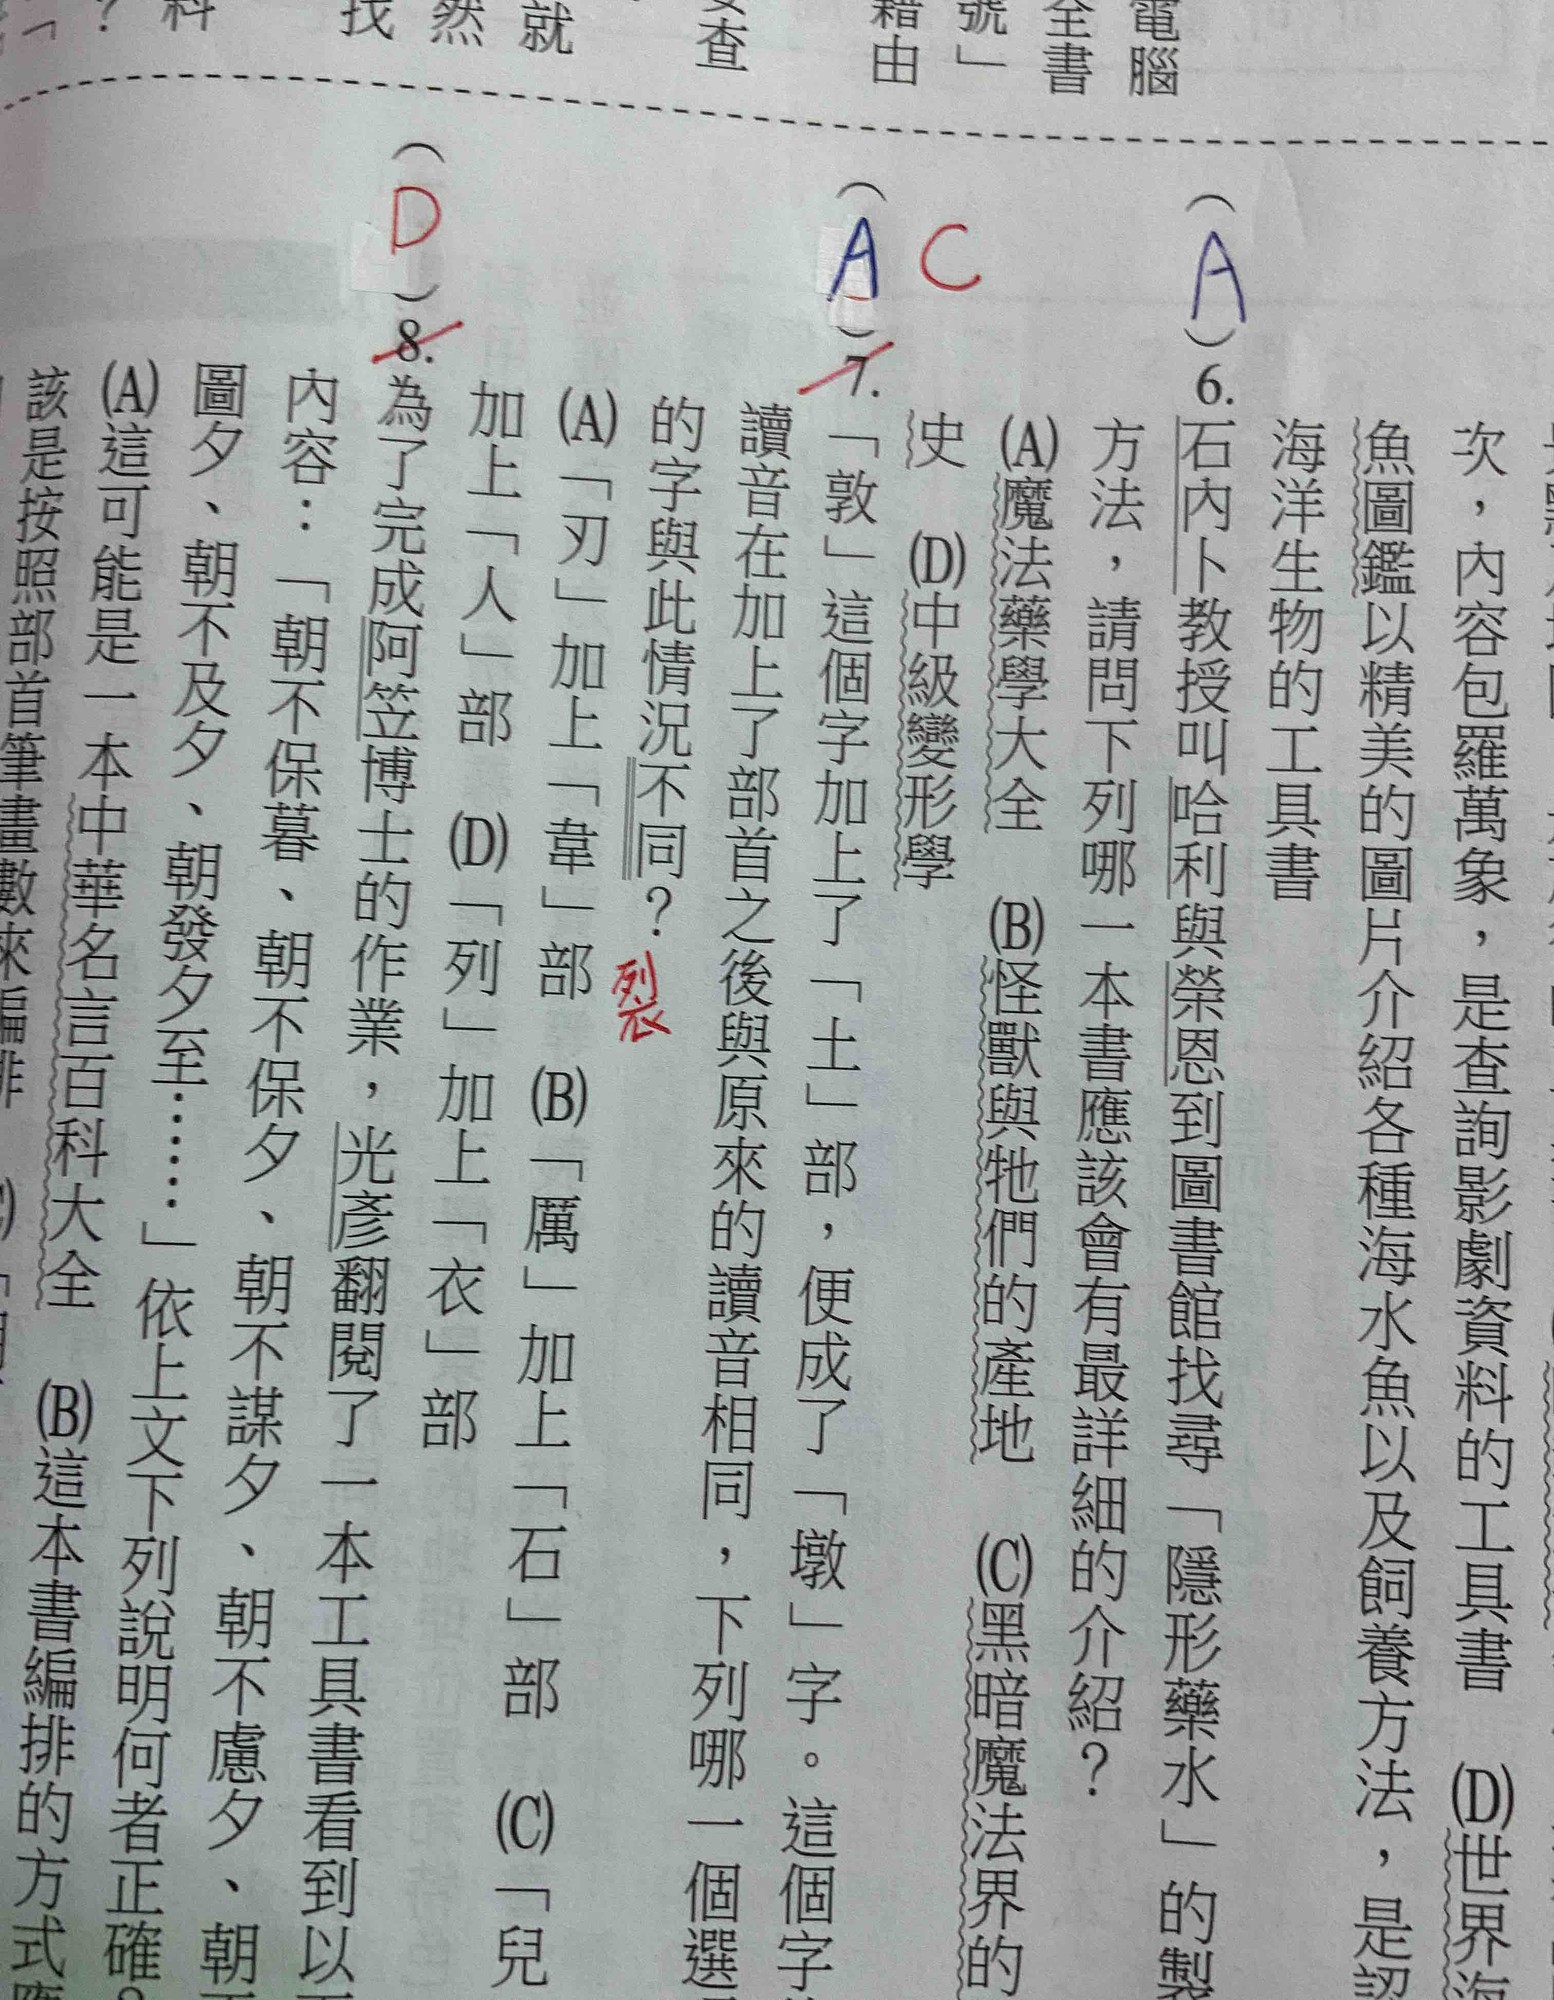 電腦
全書
號」
藉由
查
就
然
找
科
？
「
次，內容包羅萬象，是查詢影劇資料的工具書　(D)世界海
魚圖鑑以精美的圖片介紹各種海水魚以及飼養方法，是認
海洋生物的工具書
(A)6.石內卜教授叫哈利與榮恩到圖書館找尋「隱形藥水」的製
方法，請問下列哪一本書應該會有最詳細的介紹？
(A)魔法藥學大全　(B)怪獸與牠們的產地　(C)黑暗魔法界的
史　(D)中級變形學
C
(A)7.「敦」這個字加上了「土」部，便成了「墩」字。這個字
讀音在加上了部首之後與原來的讀音相同，下列哪一個選
的字與此情況不同？
裂
(A)「刃」加上「韋」部　(B)「厲」加上「石」部　(C)「兒
加上「人」部　(D)「列」加上「衣」部
(D)8.為了完成阿笠博士的作業，光彥翻閱了一本工具書看到以
內容：「朝不保暮、朝不保夕、朝不謀夕、朝不慮夕、朝
圖夕、朝不及夕、朝發夕至……」依上文下列說明何者正確？
(A)這可能是一本中華名言百科大全　(B)這本書編排的方式應
該是按照部首筆畫數來編排